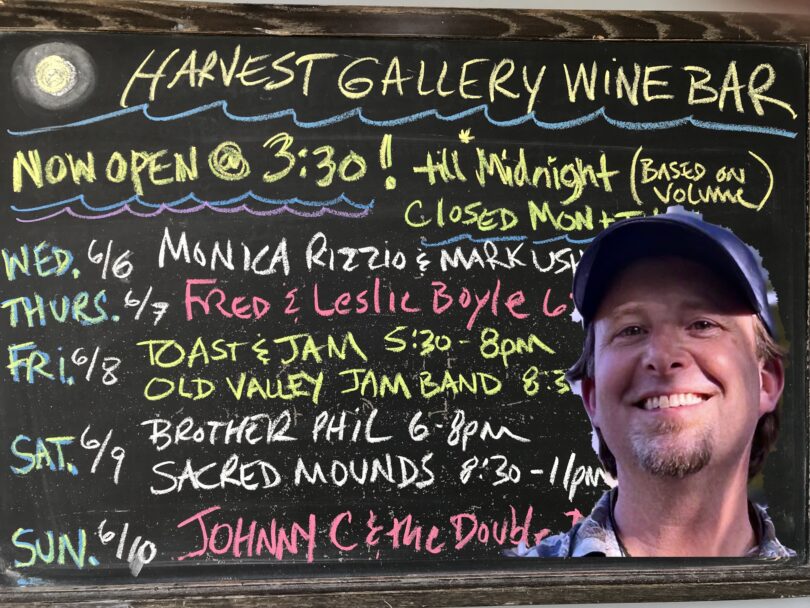 HARVEST GALLERY WINE BAR
NOW OPEN @ 3:30! till Midnight (BASED ON VOLUME)
CLOSED MON +
WED. 6/6 MONICA RIZZIO & MARK
THURS. 6/7 FRED & Leslie Boyle
FRI. 6/8 TOAST & JAM 5:30-8pm
OLD VALLEY JAM BAND
SAT. 6/9 BROTHER PHIL 6-8pm
SACRED MOUNDS 8:30-11pm
SUN. 6/10 JOHNNY C & the Double